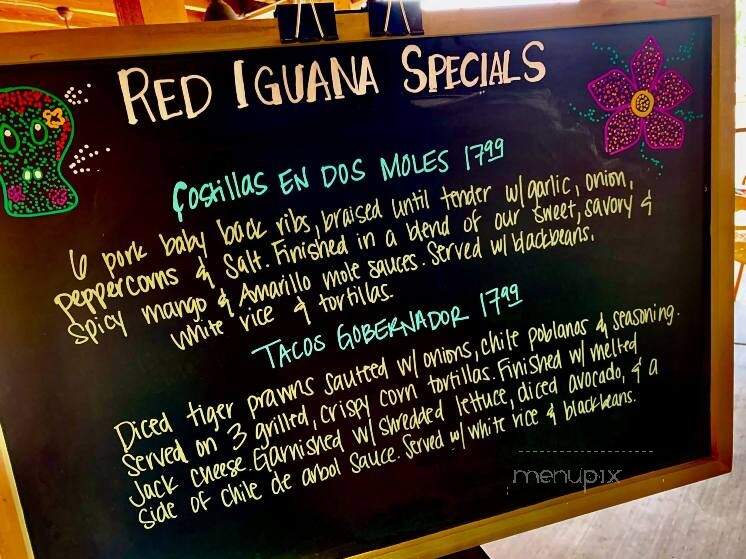 RED IGUANA SPECIALS
Costillas EN DOS MOLES 17.99
6 pork baby back ribs, braised until tender w/ garlic, onion,
peppercorns & Salt. Finished in a blend of our sweet, savory &
spicy mango & Amarillo mole sauces. Served w/ blackbeans,
white rice & tortillas.
TACOS GOBERNADOR 17.99
Diced tiger prawns sauteed w/ onions, chile poblanos & seasoning.
Served on 3 grilled, crispy corn tortillas. Finished w/ melted
Jack cheese. Garnished w/ shredded lettuce, diced avocado, & a
side of chile de arbol sauce. Served w/ white rice & blackbeans.
menupix